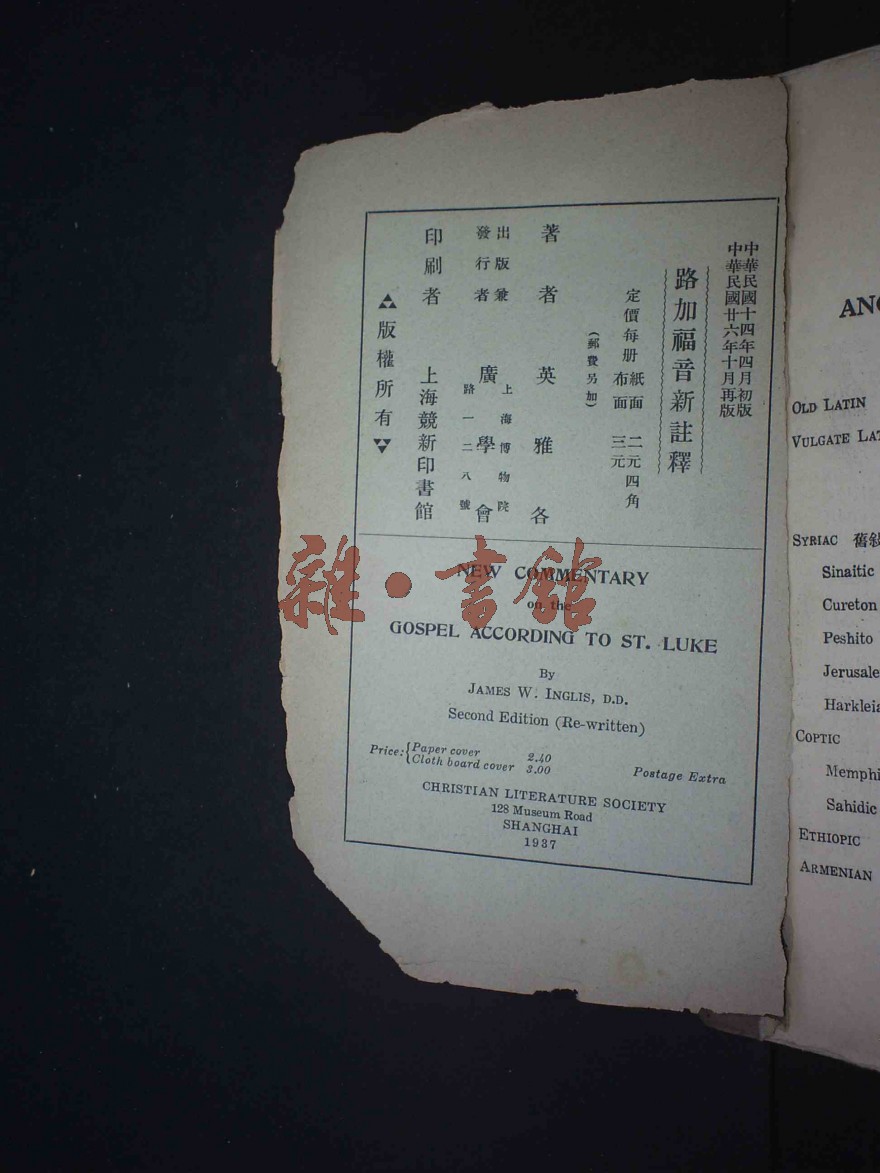 中華民國十四年四月初版
中華民國廿六年十月再版
路加福音新註釋
定價每册 紙面 二元四角
布面 三元
(郵費另加)
著者 英雅各
出版兼
發行者 廣學會
上海博物院
路一二八號
印刷者 上海競新印書館
版權所有
NEW COMMENTARY
on the
GOSPEL ACCORDING TO ST. LUKE
By
JAMES W. INGLIS, D.D.
Second Edition (Re-written)
Price: { Paper cover 2.40
Cloth board cover 3.00
Postage Extra
CHRISTIAN LITERATURE SOCIETY
128 Museum Road
SHANGHAI
1937
雜·書館
OLD LATIN
VULGATE
SYRIAC 舊
Sinaitic
Cureton
Peshito
COPTIC
Sahidic
ETHIOPIC
ARMENIAN